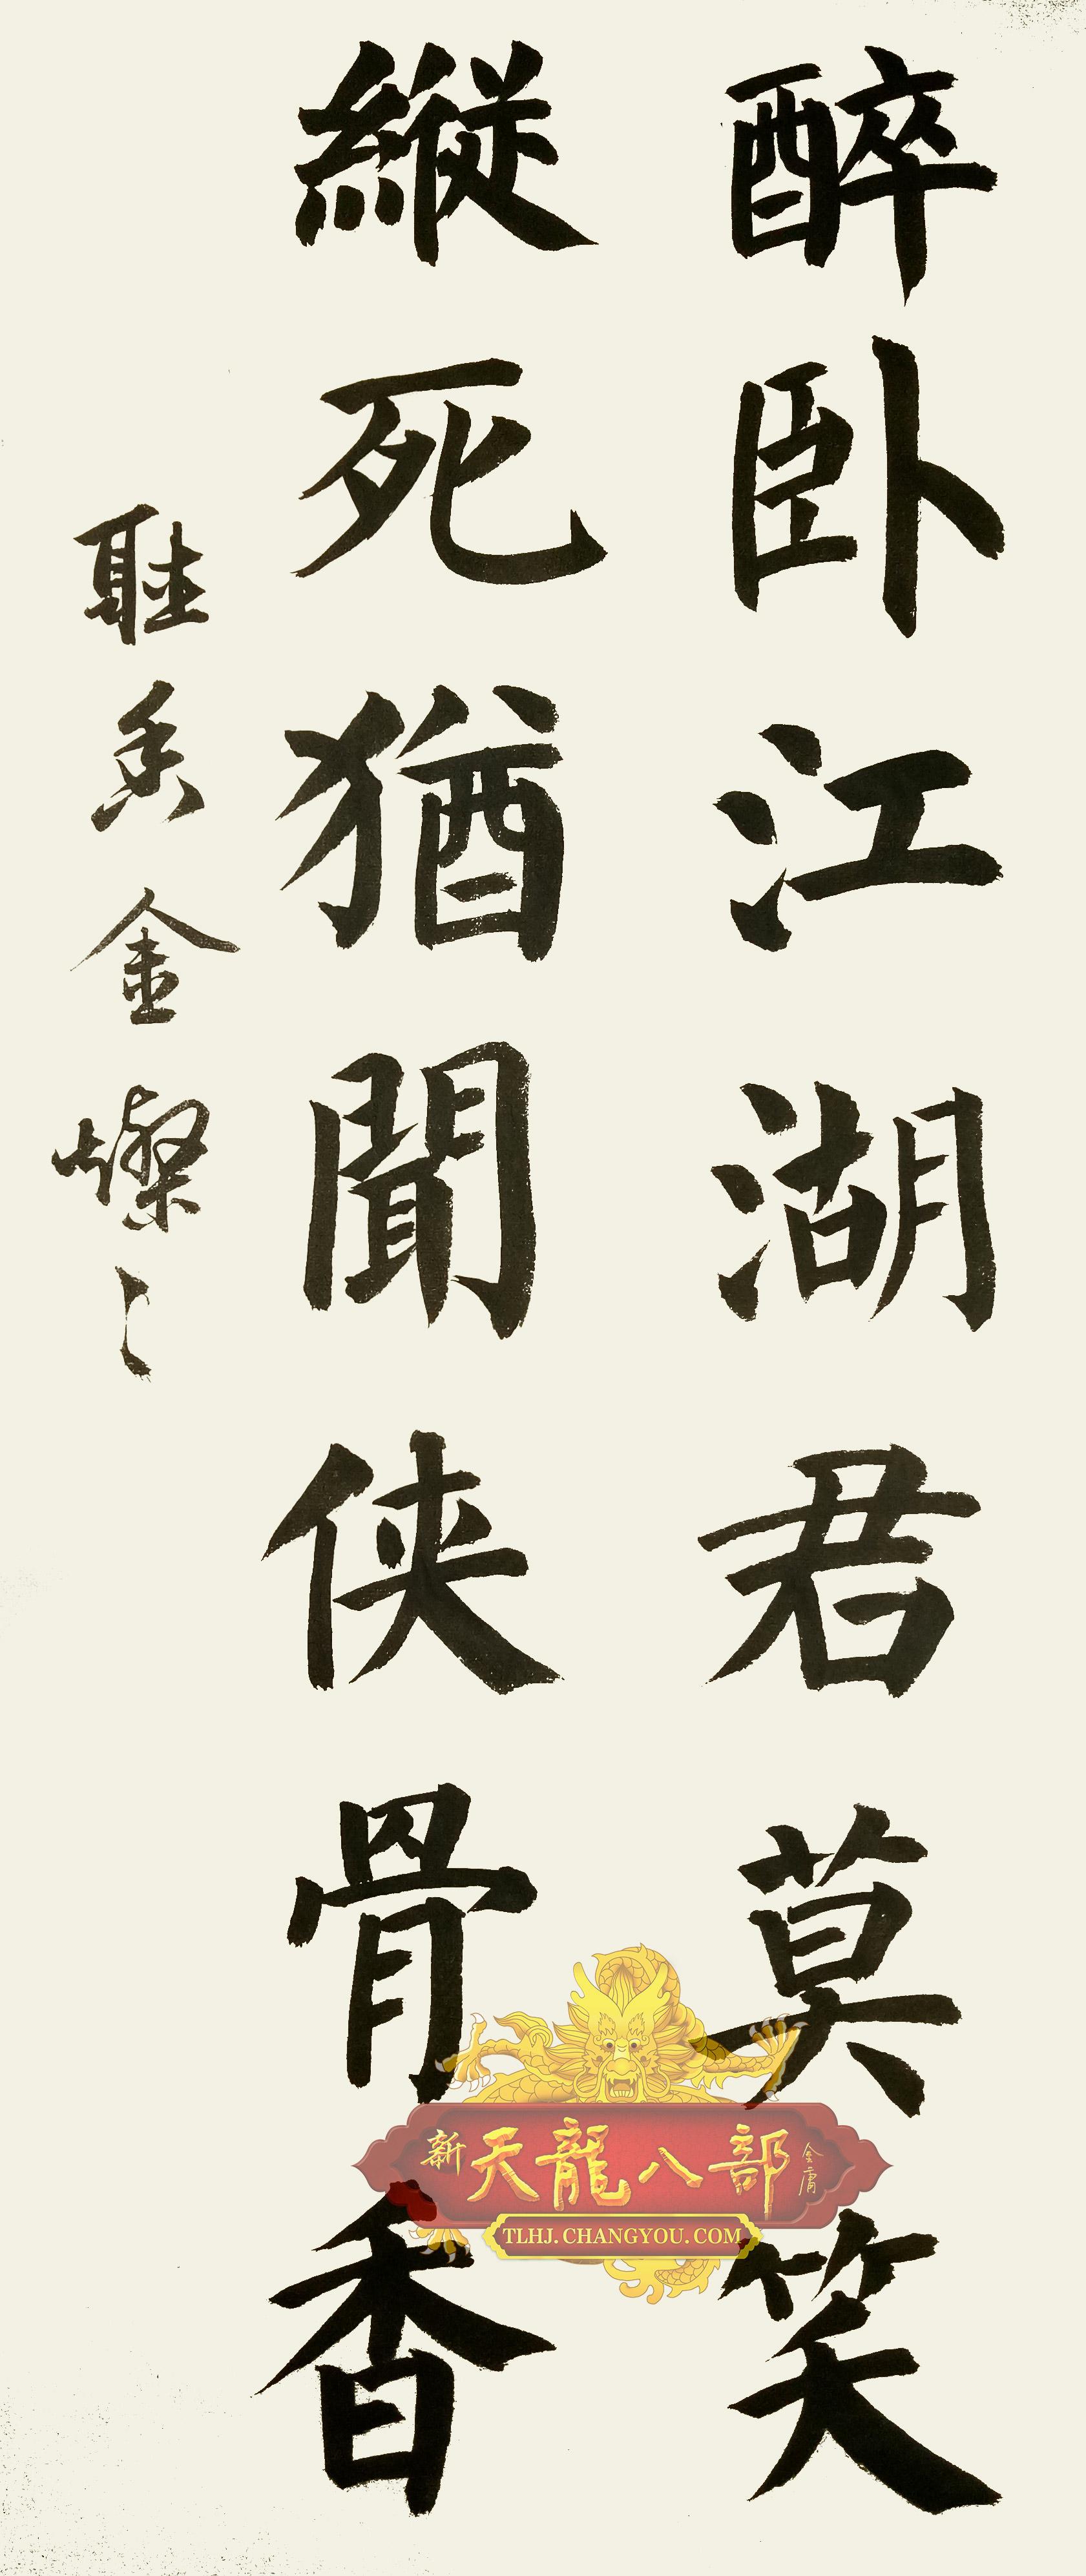 醉卧江湖君莫笑
縱死猶聞俠骨香
聽香金燦〻
新天龍八部金庸
TLHJ.CHANGYOU.COM